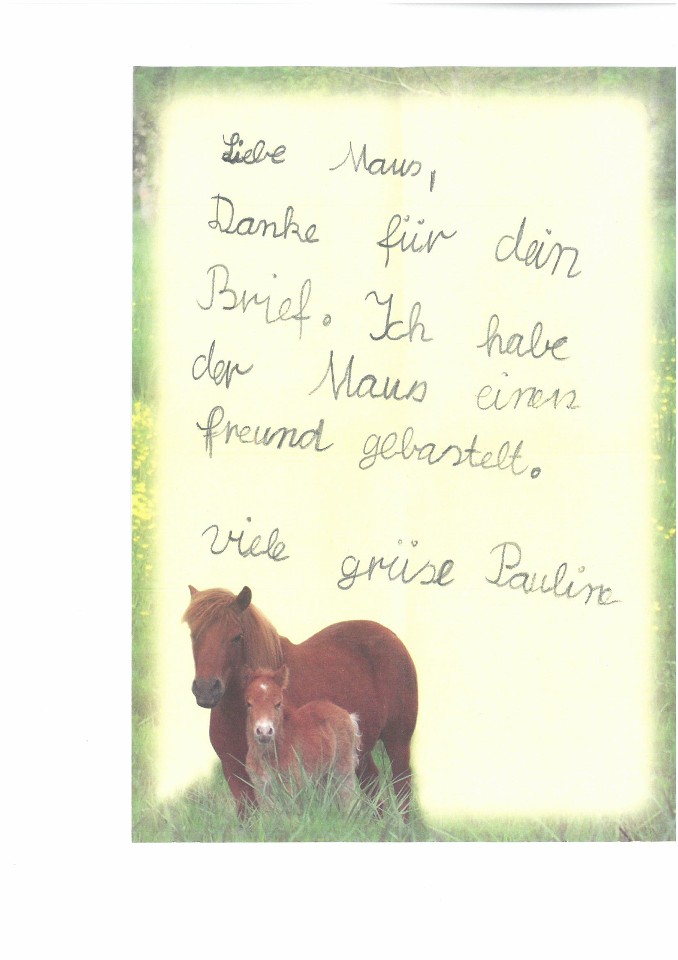 Liebe Maus,
Danke für dein
Brief. Ich habe
der Maus einen
freund gebastelt.
viele grüse Pauline